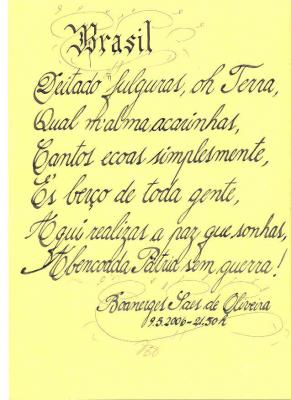 Brasil
Deitado fulguras, oh Terra,
Qual m'alma acarinhas,
Cantos ecoas simplesmente,
És berço de toda gente,
Aqui realizas a paz que sonhas,
Abencodda Patria sem guerra!
Boanerges Saes de Oliveira
9.5.2006-21:50h